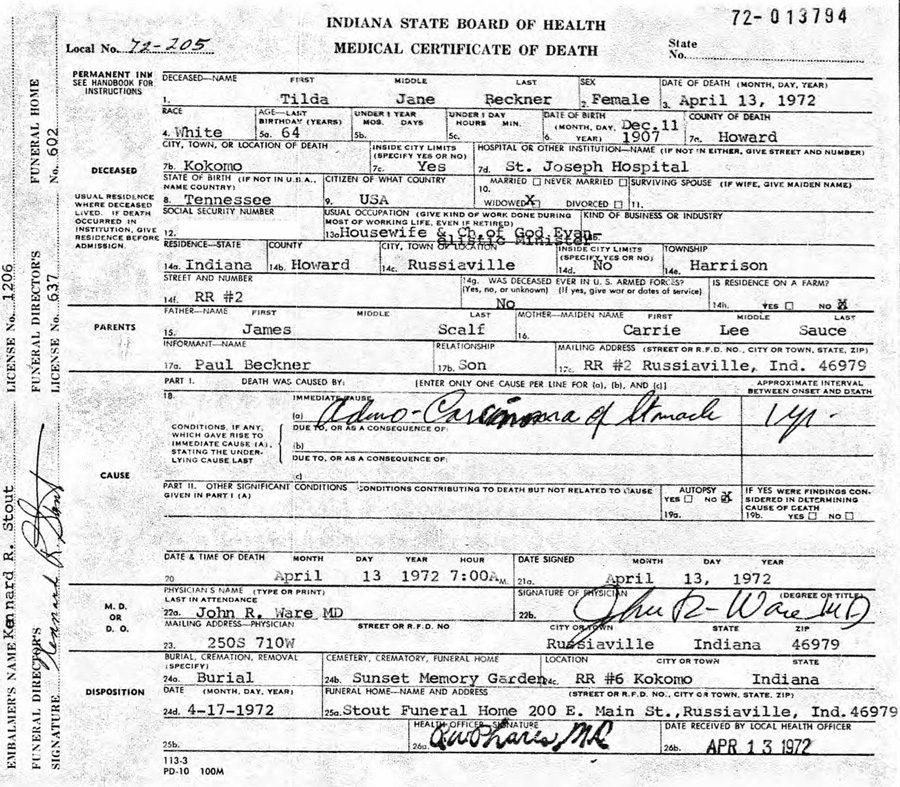 INDIANA STATE BOARD OF HEALTH
72-013794
Local No. 72-205
MEDICAL CERTIFICATE OF DEATH
State No.
PERMANENT INK
SEE HANDBOOK FOR
INSTRUCTIONS
DECEASED—NAME FIRST MIDDLE LAST SEX DATE OF DEATH (MONTH, DAY, YEAR)
1. Tilda Jane Beckner 2. Female 3. April 13, 1972
RACE AGE—LAST BIRTHDAY (YEARS) UNDER 1 YEAR MOS. DAYS UNDER 1 DAY HOURS MIN. DATE OF BIRTH (MONTH, DAY, YEAR) COUNTY OF DEATH
4. White 5a. 64 5b. 5c. 6. Dec. 11 1907 7a. Howard
CITY, TOWN, OR LOCATION OF DEATH INSIDE CITY LIMITS (SPECIFY YES OR NO) HOSPITAL OR OTHER INSTITUTION—NAME (IF NOT IN EITHER, GIVE STREET AND NUMBER)
7b. Kokomo 7c. Yes 7d. St. Joseph Hospital
DECEASED
STATE OF BIRTH (IF NOT IN U.S.A., NAME COUNTRY) CITIZEN OF WHAT COUNTRY MARRIED NEVER MARRIED SURVIVING SPOUSE (IF WIFE, GIVE MAIDEN NAME)
8. Tennessee 9. USA 10. WIDOWED X DIVORCED 11.
USUAL RESIDENCE
WHERE DECEASED
LIVED. IF DEATH
OCCURRED IN
INSTITUTION, GIVE
RESIDENCE BEFORE
ADMISSION.
SOCIAL SECURITY NUMBER USUAL OCCUPATION (GIVE KIND OF WORK DONE DURING MOST OF WORKING LIFE, EVEN IF RETIRED) KIND OF BUSINESS OR INDUSTRY
12. 13a. Housewife & Ch. of God Evan-
glistic Minister
RESIDENCE—STATE COUNTY CITY, TOWN OR LOCATION INSIDE CITY LIMITS (SPECIFY YES OR NO) TOWNSHIP
14a. Indiana 14b. Howard 14c. Russiaville 14d. No 14e. Harrison
STREET AND NUMBER 14g. WAS DECEASED EVER IN U. S. ARMED FORCES? (Yes, no, or unknown) (If yes, give war or dates of service) IS RESIDENCE ON A FARM?
14f. RR #2 No 14h. YES NO X
PARENTS
FATHER—NAME FIRST MIDDLE LAST MOTHER—MAIDEN NAME FIRST MIDDLE LAST
15. James Scalf 16. Carrie Lee Sauce
INFORMANT—NAME RELATIONSHIP MAILING ADDRESS (STREET OR R.F.D. NO., CITY OR TOWN, STATE, ZIP)
17a. Paul Beckner 17b. Son 17c. RR #2 Russiaville, Ind. 46979
PART I. DEATH WAS CAUSED BY: [ENTER ONLY ONE CAUSE PER LINE FOR (a), (b), AND (c)] APPROXIMATE INTERVAL BETWEEN ONSET AND DEATH
18. IMMEDIATE CAUSE
(a) Adeno-Carcinoma of Stomach 1 yr.
CONDITIONS, IF ANY,
WHICH GAVE RISE TO
IMMEDIATE CAUSE (A),
STATING THE UNDER-
LYING CAUSE LAST
DUE TO, OR AS A CONSEQUENCE OF:
(b)
DUE TO, OR AS A CONSEQUENCE OF:
(c)
CAUSE
PART II. OTHER SIGNIFICANT CONDITIONS CONDITIONS CONTRIBUTING TO DEATH BUT NOT RELATED TO CAUSE GIVEN IN PART I (A)
AUTOPSY YES NO X 19a.
IF YES WERE FINDINGS CONSIDERED IN DETERMINING CAUSE OF DEATH
19b. YES NO
DATE & TIME OF DEATH MONTH DAY YEAR HOUR DATE SIGNED MONTH DAY YEAR
20 April 13 1972 7:00A M. 21a. April 13, 1972
M. D.
OR
D. O.
PHYSICIAN'S NAME (TYPE OR PRINT) LAST IN ATTENDANCE SIGNATURE OF PHYSICIAN (DEGREE OR TITLE)
22a. John R. Ware MD 22b. John R. Ware MD
MAILING ADDRESS—PHYSICIAN STREET OR R.F.D. NO CITY OR TOWN STATE ZIP
23. 250S 710W Russiaville Indiana 46979
DISPOSITION
BURIAL, CREMATION, REMOVAL (SPECIFY) CEMETERY, CREMATORY, FUNERAL HOME LOCATION CITY OR TOWN STATE
24a. Burial 24b. Sunset Memory Garden 24c. RR #6 Kokomo Indiana
DATE (MONTH, DAY, YEAR) FUNERAL HOME—NAME AND ADDRESS (STREET OR R.F.D. NO., CITY OR TOWN, STATE, ZIP)
24d. 4-17-1972 25a. Stout Funeral Home 200 E. Main St., Russiaville, Ind. 46979
HEALTH OFFICER SIGNATURE DATE RECEIVED BY LOCAL HEALTH OFFICER
25b. 26a. 26b. APR 13 1972
113-3
PD-10 100M
EMBALMER'S NAME Kenard R. Stout LICENSE No. 1206
FUNERAL DIRECTOR'S SIGNATURE Kennard R. Stout FUNERAL DIRECTOR'S LICENSE No. 637 FUNERAL HOME No. 602